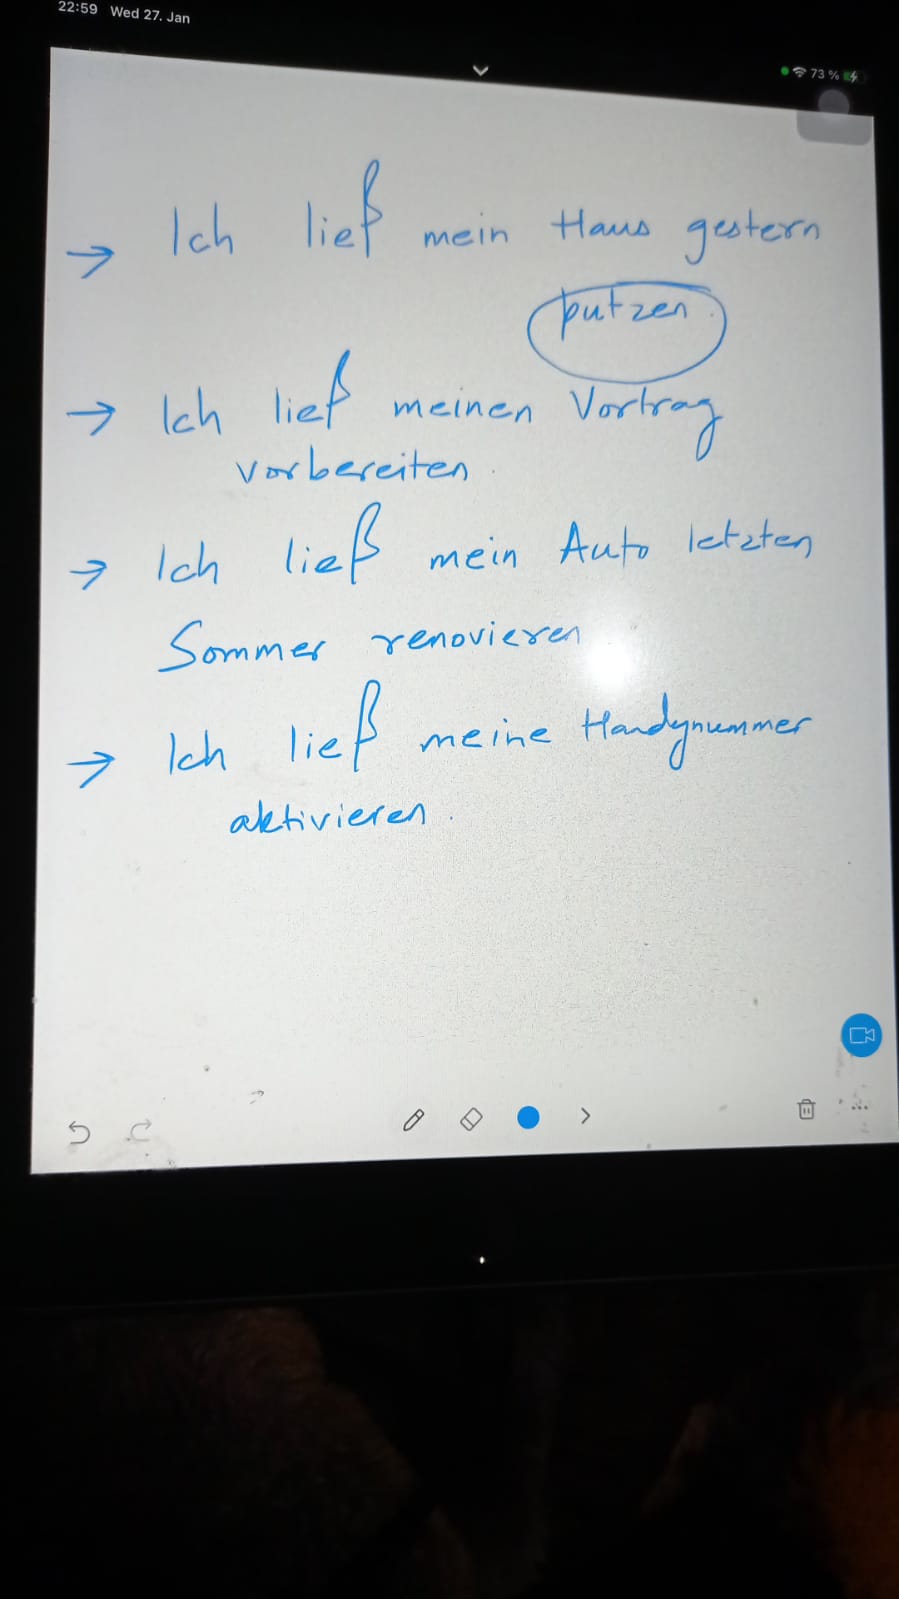 22:59 Wed 27. Jan
73 %
→ Ich ließ mein Haus gestern
putzen.
→ Ich ließ meinen Vortrag
vorbereiten.
→ Ich ließ mein Auto letzten
Sommer renovieren
→ Ich ließ meine Handynummer
aktivieren.